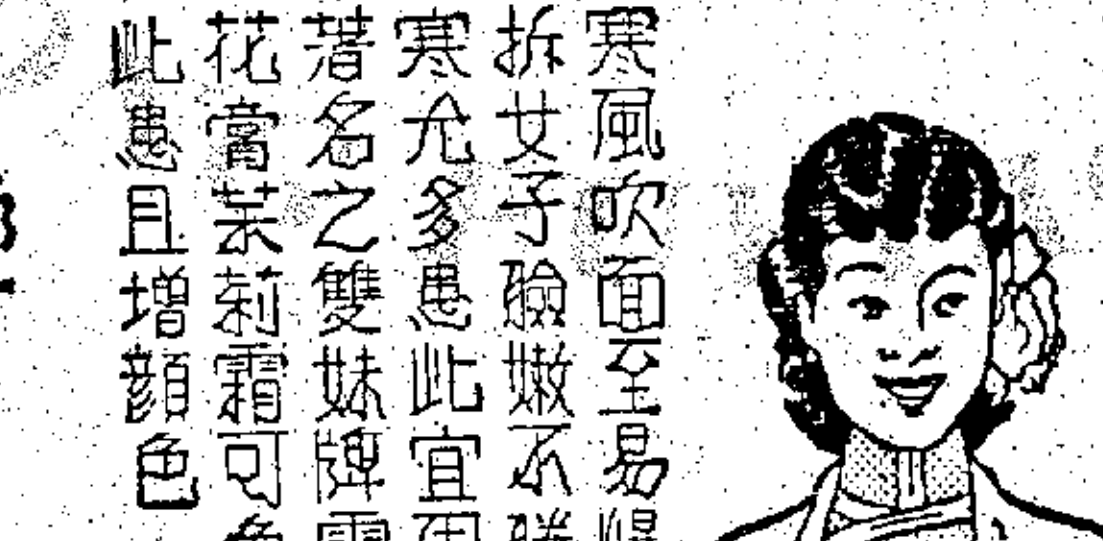 寒風吹面至易
拆女子臉嫩不
寒尤多患此宜
著名之雙妹牌雪
花膏茉莉霜可
此患且增顔色